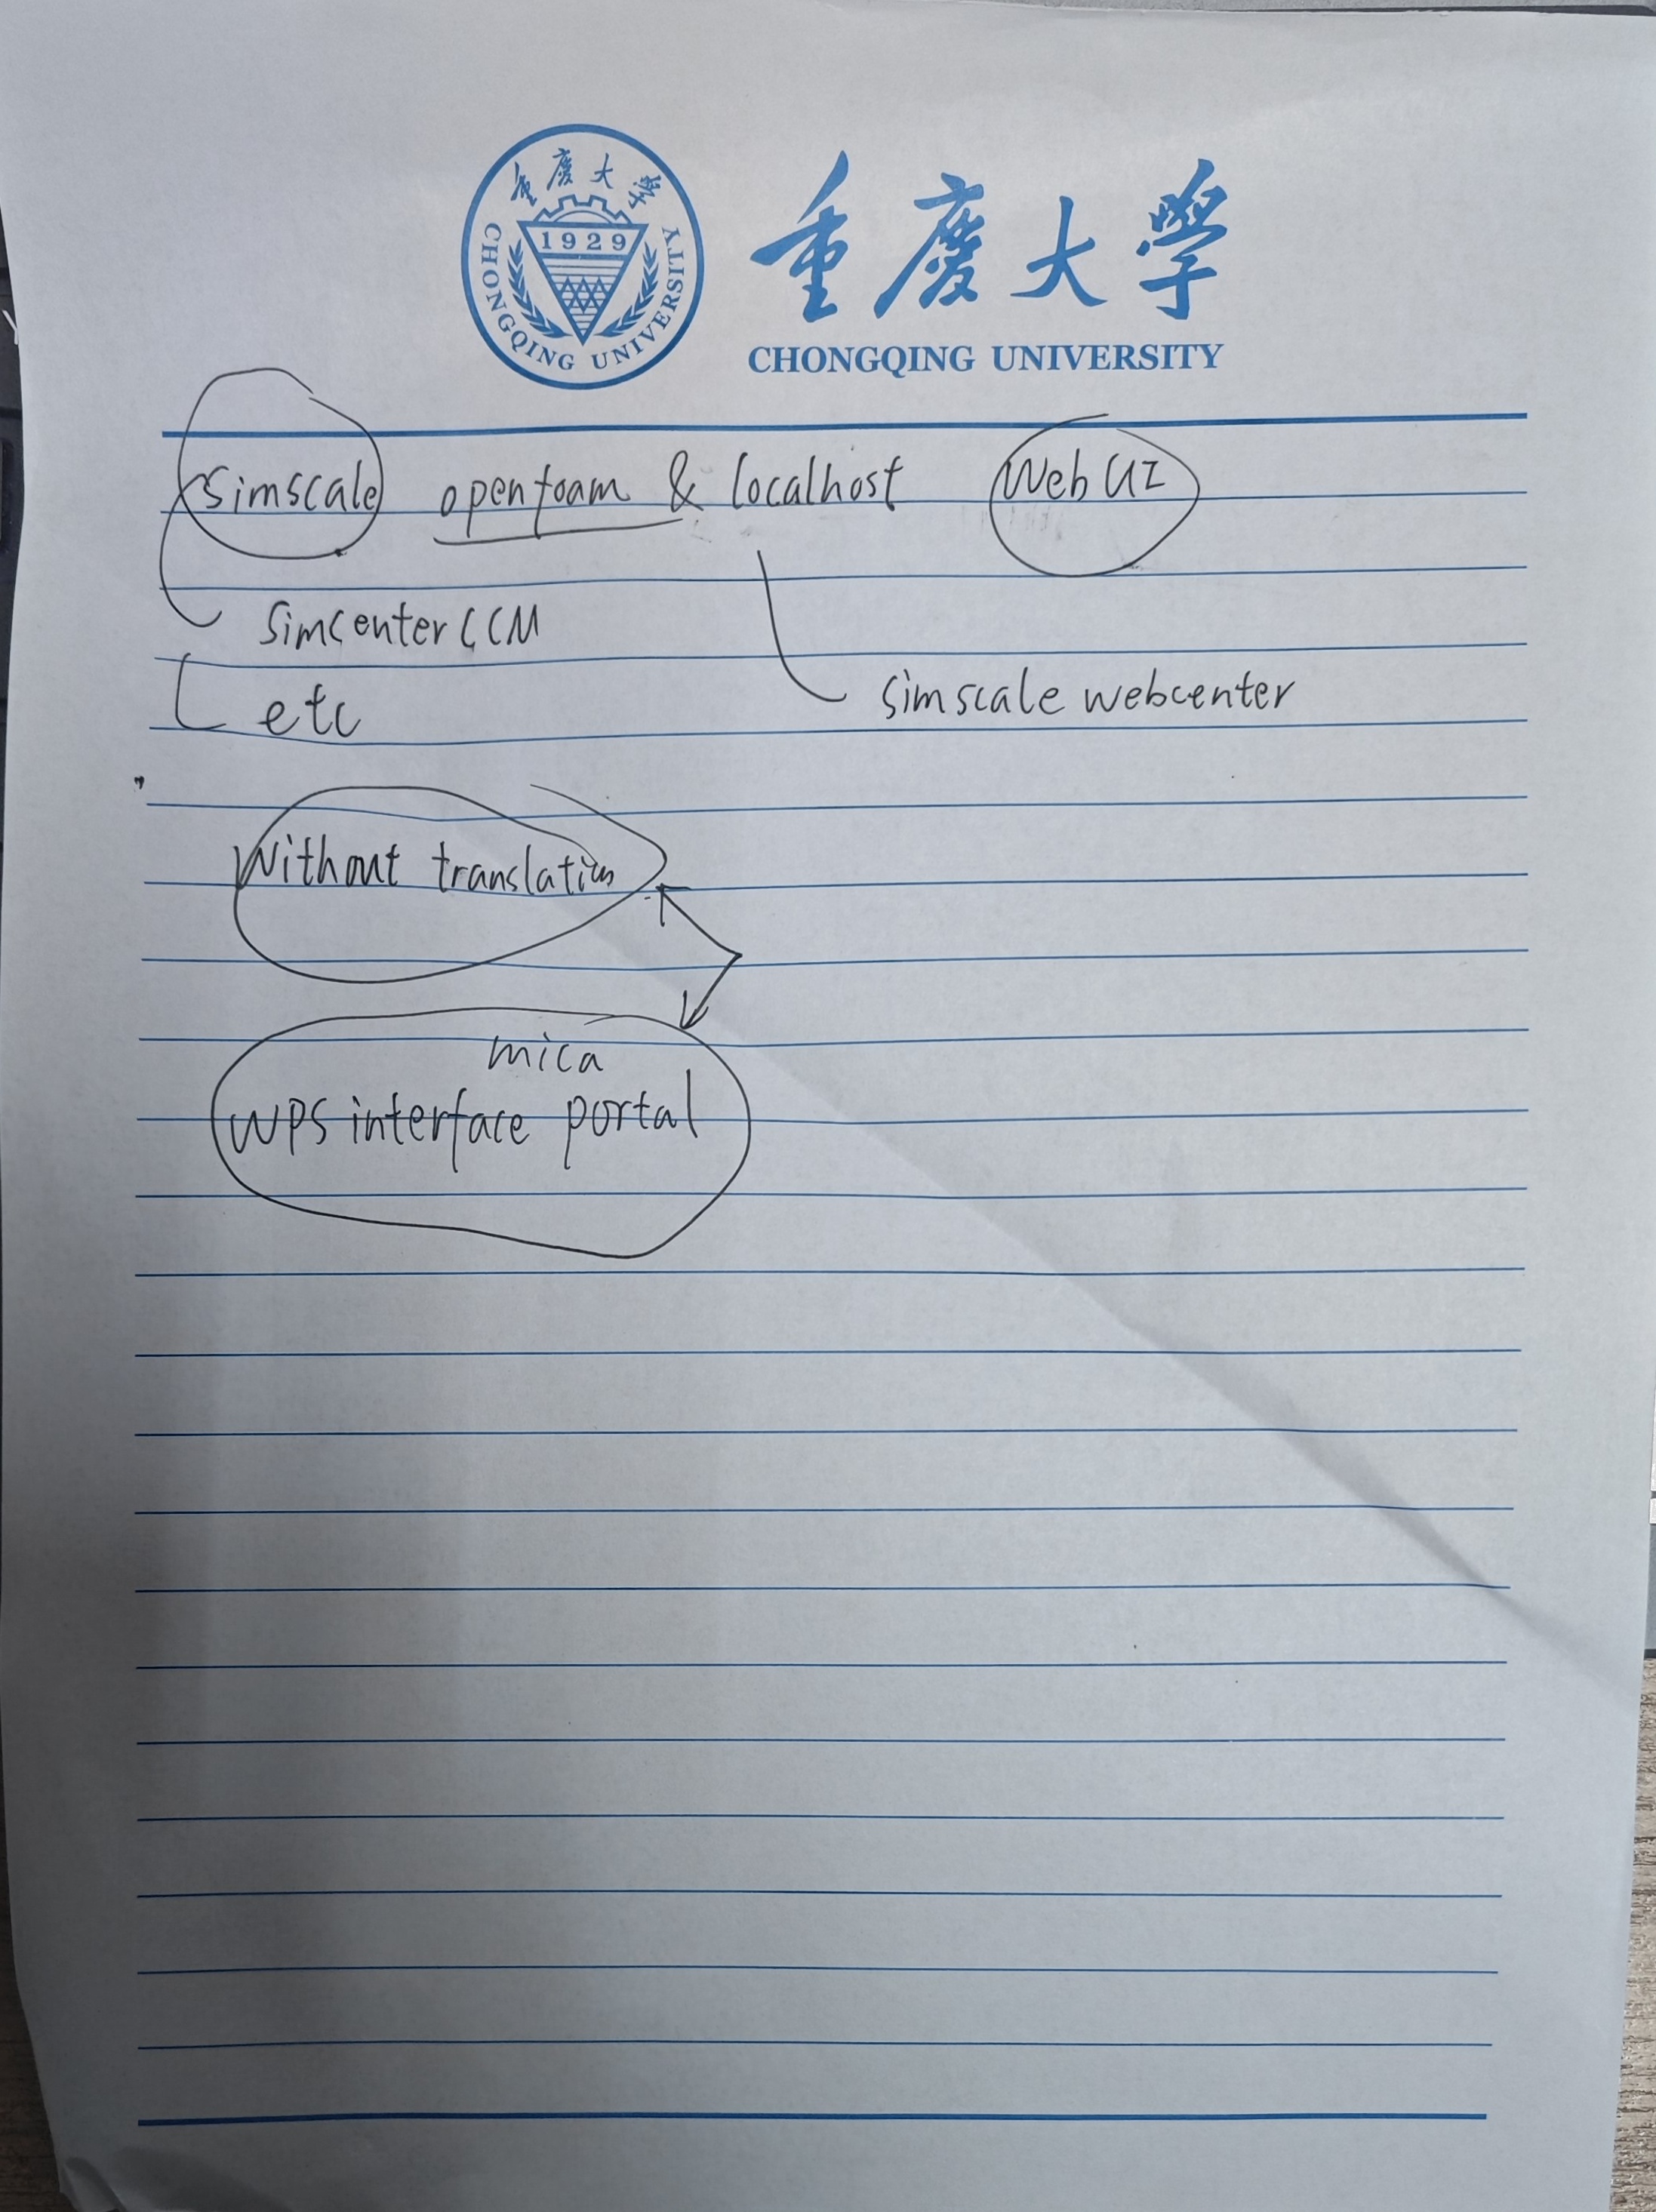 重慶大學
CHONGQING UNIVERSITY
1929
重慶大學
CHONGQING UNIVERSITY
Simscale openfoam & localhost Web UI
Simcenter CCM
simscale webcenter
etc
Without translation
mica
WPS interface portal